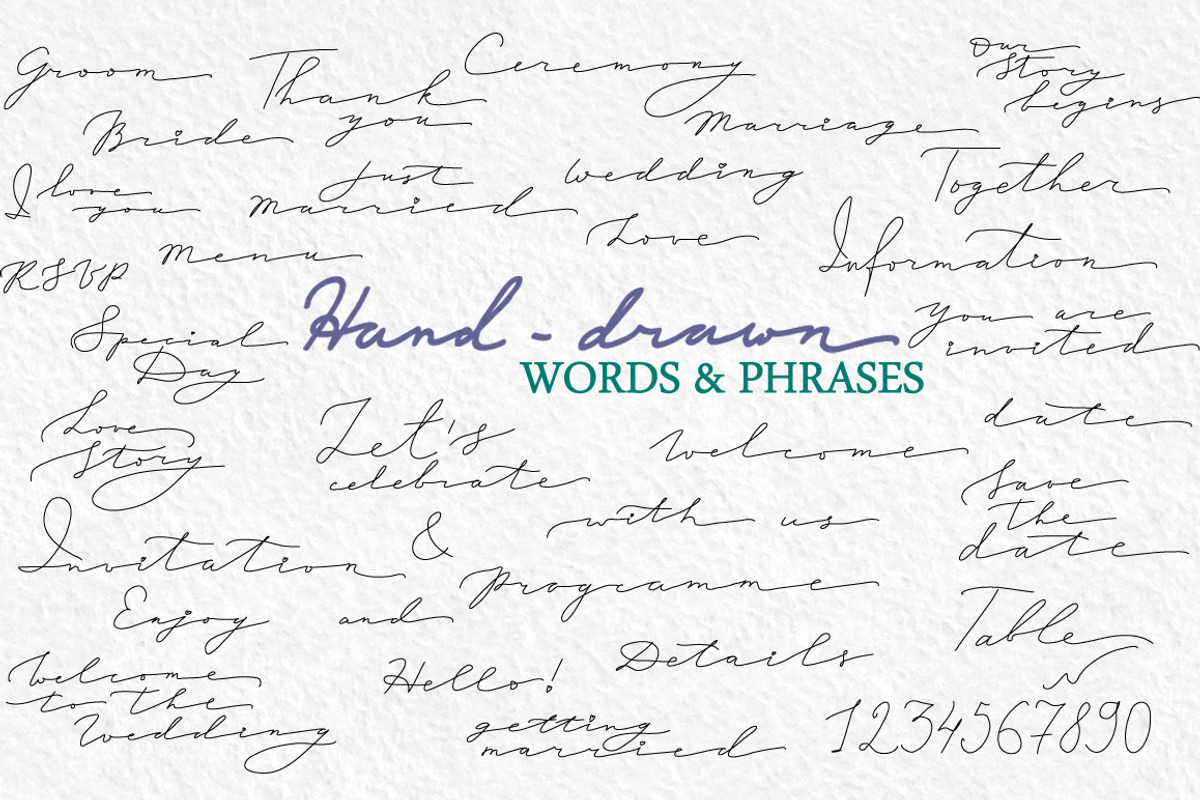 Groom
Thank
you
Ceremony
Our
Story
begins
Bride
Marriage
I love
you
Just
married
wedding
Together
Menu
Love
Information
RSVP
Hand - drawn
WORDS & PHRASES
Special
Day
you are
invited
Love
Story
Let's
celebrate
Welcome
date
Save
the
date
with us
Invitation
&
programme
Enjoy
and
Table
№
Welcome
to the
Wedding
Hello!
Details
getting
married
1234567890